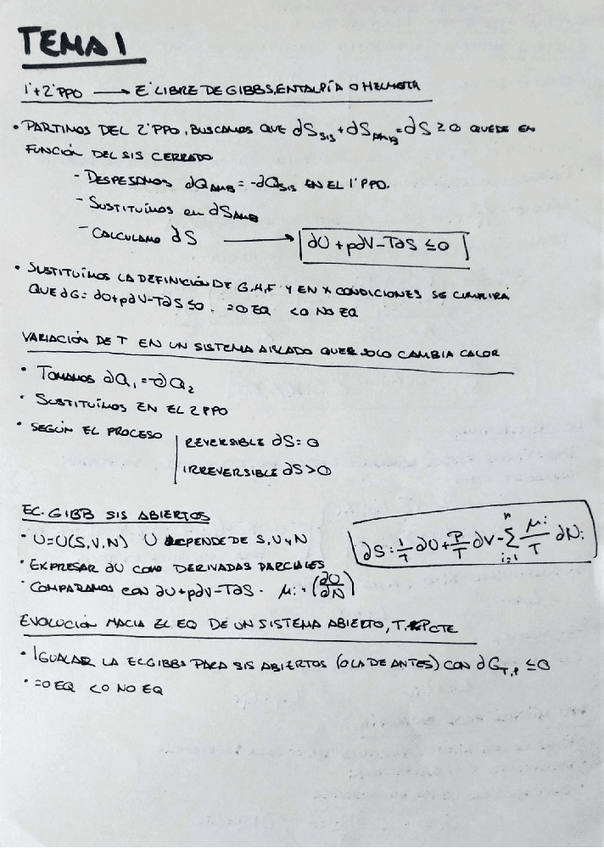 TEMA 1
1º+2º PPO → Eª LIBRE DE GIBBS, ENTALPÍA O HELMOTH
• PARTIMOS DEL 2º PPO, BUSCAMOS QUE ∂S_SIS + ∂S_AMB = ∂S ≥ 0 QUEDE EN
FUNCIÓN DEL SIS CERRADO
- DESPESAMOS ∂Q_AMB = -∂Q_SIS EN EL 1º PPO.
- SUSTITUÍMOS en ∂S_AMB
- CALCULAMO ∂S → ∂U + p∂V - T∂S ≤ 0
• SUSTITUÍMOS LA DEFINICIÓN DE G, H, F Y EN X CONDICIONES SE CUMPLIRÁ
QUE ∂G = ∂U + p∂V - T∂S ≤ 0. =0 EQ <0 NO EQ
VARIACIÓN DE T EN UN SISTEMA AISLADO QUE SOLO CAMBIA CALOR
• TOMAMOS ∂Q₁ = -∂Q₂
• SUSTITUÍMOS EN EL 2 PPO
• SEGÚN EL PROCESO | REVERSIBLE ∂S = 0
| IRREVERSIBLE ∂S > 0
EC. GIBB SIS ABIERTOS
• U = U(S, V, N) U DEPENDE DE S, V y N
∂S = 1/T ∂U + P/T ∂V - Σ_{i=1}^{n} μi/T ∂Ni
• EXPRESAR ∂U COMO DERIVADAS PARCIALES
• COMPARAMOS CON ∂U + p∂V - T∂S. μi = (∂U/∂N)
EVOLUCIÓN HACIA EL EQ DE UN SISTEMA ABIERTO, T, P CTE
• IGUALAR LA EC GIBBS PARA SIS ABIERTOS (O LA DE ANTES) CON ∂G_T,P ≤ 0
• =0 EQ <0 NO EQ